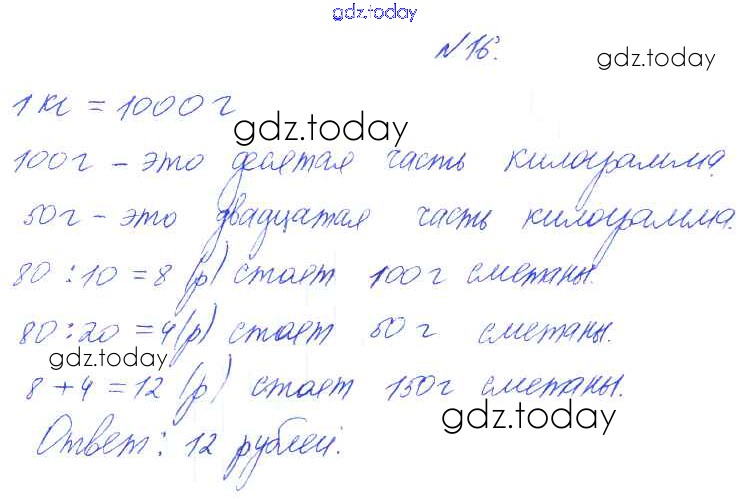 gdz.today
№16.
gdz.today
1 кг = 1000 г
gdz.today
100 г – это десятая часть килограмма.
50 г – это двадцатая часть килограмма.
80 : 10 = 8 (р) стоет 100 г сметаны.
80 : 20 = 4 (р) стоет 50 г сметаны.
gdz.today
8 + 4 = 12 (р) стоет 150 г сметаны.
gdz.today
Ответ: 12 рублей.